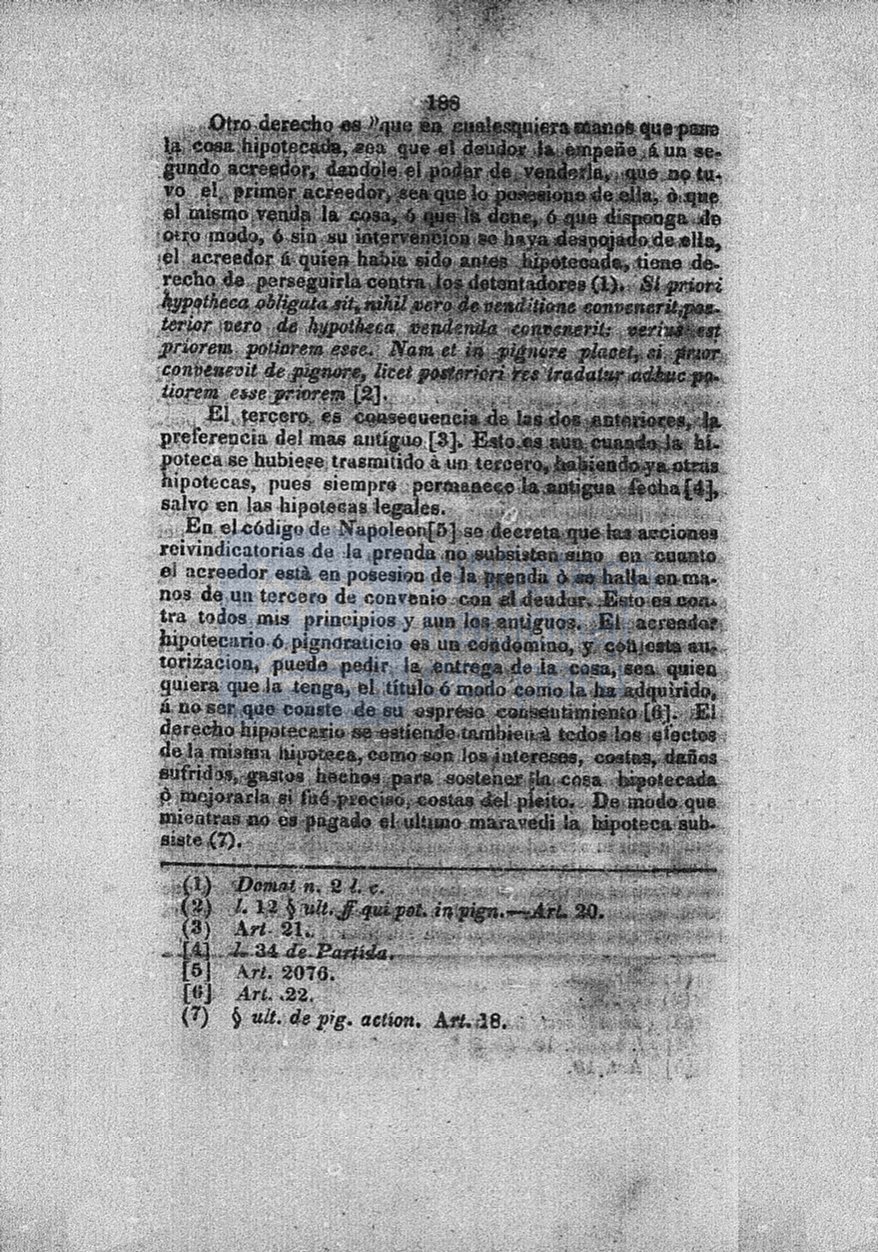 188
Otro derecho es "que en cualesquiera manos que pare
la cosa hipotecada, sea que el deudor la empeñe á un se-
gundo acreedor, dandole el poder de venderla, que no tu-
vo el primer acreedor, sea que lo posesione de ella, ò que
el mismo venda la cosa, ó que la done, ó que disponga de
otro modo, ó sin su intervencion se haya despojado de ella,
el acreedor á quien habia sido antes hipotecada, tiene de-
recho de perseguirla contra los detentadores (1). Si priori
hypotheca obligata sit, nihil vero de venditione convenerit, pos-
terior vero de hypotheca vendenda convenerit: verius est
priorem potiorem esse. Nam et in pignore placet, si prior
convenevit de pignore, licet posteriori res tradatur adhuc po-
tiorem esse priorem [2].
El tercero es consecuencia de las dos anteriores, la
preferencia del mas antíguo [3]. Esto es aun cuando la hi-
poteca se hubiese trasmitido à un tercero, habiendo ya otras
hipotecas, pues siempre permanece la antigua fecha [4],
salvo en las hipotecas legales.
En el código de Napoleon[5] se decreta que las acciones
reivindicatorias de la prenda no subsisten sino en cuanto
el acreedor està en posesion de la prenda ò se halla en ma-
nos de un tercero de convenio con el deudor. Esto es con-
tra todos mis principios y aun los antiguos. El acreedor
hipotecario ó pignoraticio es un condomino, y con esta au-
torizacion, puede pedir la entrega de la cosa, sea quien
quiera que la tenga, el título ó modo como la ha adquirido,
á no ser que conste de su espreso consentimiento [6]. El
derecho hipotecario se estiende tambien à todos los efectos
de la misma hipoteca, como son los intereses, costas, daños
sufridos, gastos hechos para sostener la cosa hipotecada
ò mejorarla si fué preciso, costas del pleito. De modo que
mientras no es pagado el ultimo maravedi la hipoteca sub-
siste (7).
(1) Domat n. 2 l. c.
(2) l. 12 § ult. ff qui pot. in pign.—Art. 20.
(3) Art. 21.
[4] l. 34 de Partida.
[5] Art. 2076.
[6] Art. 22.
(7) § ult. de pig. action. Art. 18.